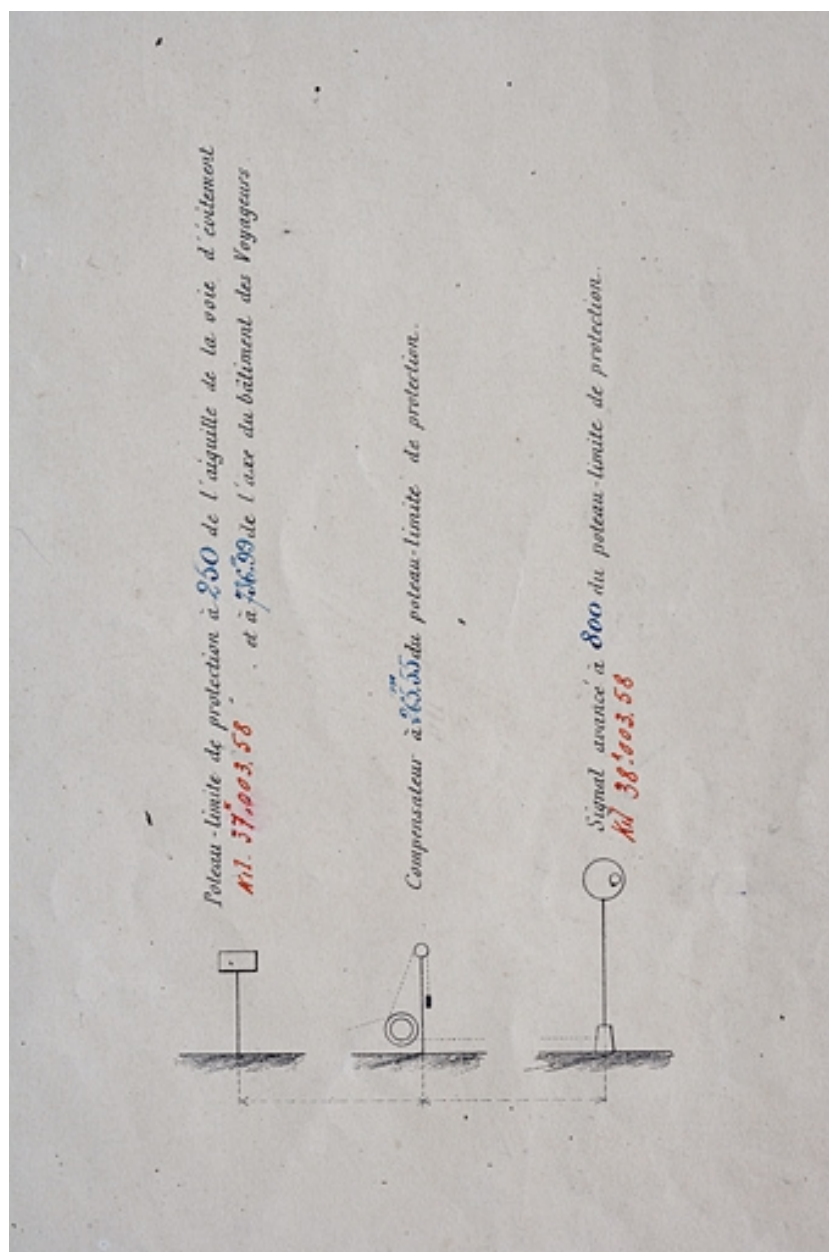 Poteau-limite de protection à 250 de l'aiguille de la voie d'évitement
et à 736.99 de l'axe du bâtiment des Voyageurs
Kil. 37k003.58
Compensateur à du poteau-limite de protection.
Signal avancé à 800 du poteau-limite de protection.
Kil 38k003.58